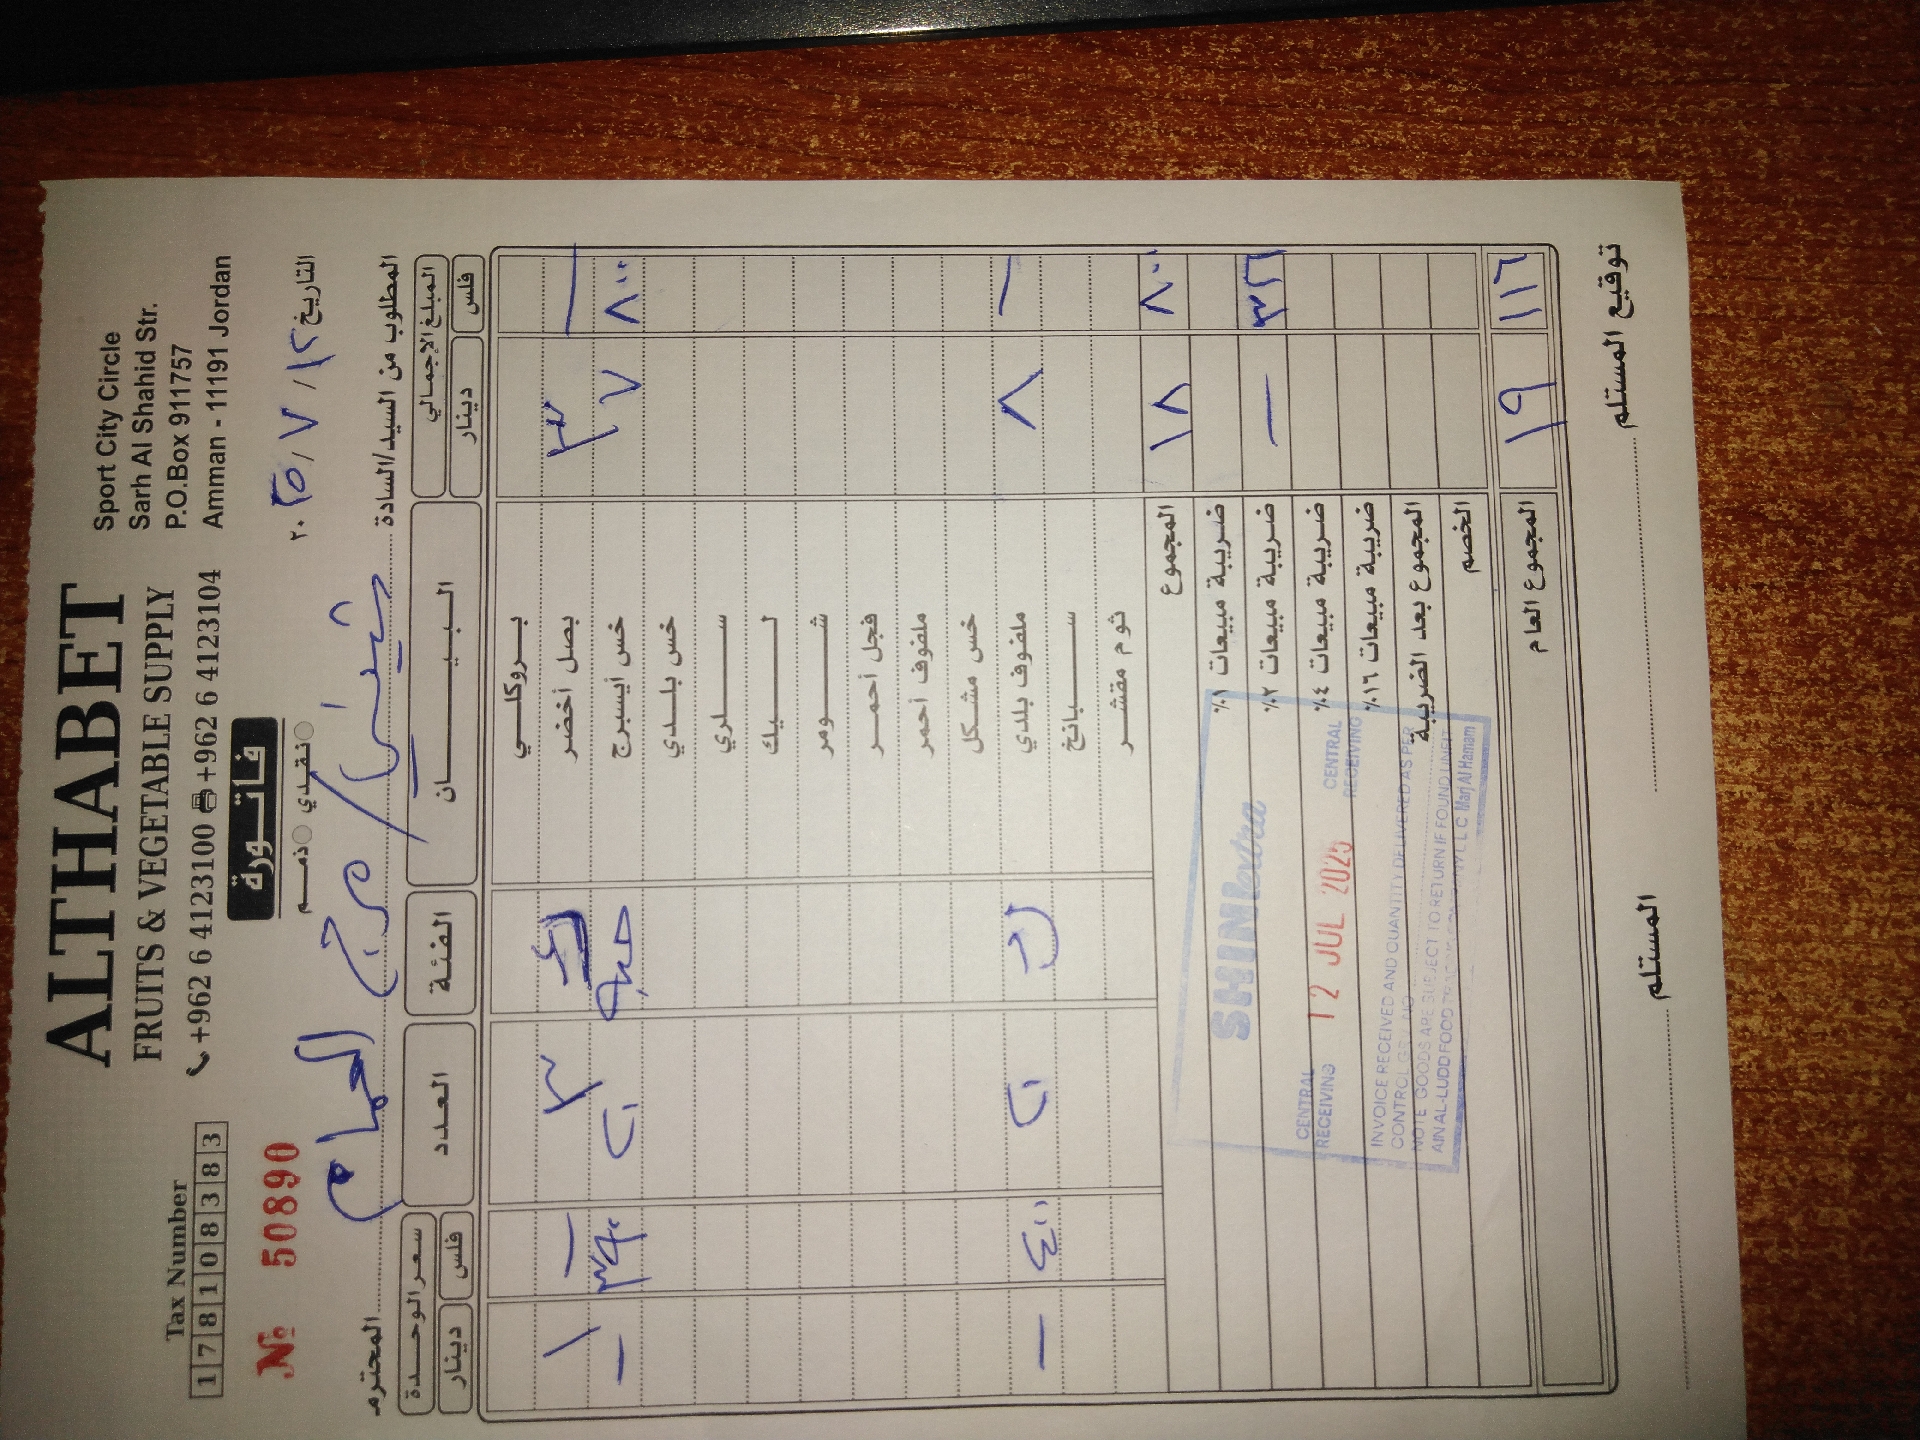 ALTHABET
FRUITS & VEGETABLE SUPPLY
+962 6 4123100 +962 6 4123104
Sport City Circle
Sarh Al Shahid Str.
P.O.Box 911757
Amman - 11191 Jordan
Tax Number
178108383
№ 50890
فاتورة
ذمم نقدي
التاريخ ١٢ / ٧ / ٢٠٢٥
المطلوب من السيد/السادة مرج الحمام المحترم
المبلغ الإجمالي البيان الفئة العدد سعر الوحدة
فلس دينار فلس دينار
بروكلي
— ٣ بصل أخضر ٣ — ١
٨٠٠ ٧ خس أيسبرج
خس بلدي
سلري
ليك
شومر
فجل أحمر
ملفوف أحمر
خس مشكل
— ٨ ملفوف بلدي ٤٠٠ —
سبانخ
ثوم مقشر
٨٠٠ ١٨ المجموع
ضريبة مبيعات ١%
— ضريبة مبيعات ٢%
ضريبة مبيعات ٤%
ضريبة مبيعات ١٦%
المجموع بعد الضريبة
الخصم
١١٦ ١٩ المجموع العام
SHIMextra
CENTRAL RECEIVING 12 JUL 2025 CENTRAL RECEIVING
INVOICE RECEIVED AND QUANTITY DELIVERED AS PER
CONTROL
NOTE GOODS ARE SUBJECT TO RETURN IF FOUND UNFIT
AIN AL-LUDD FOOD LLC Marj Al Hamam
توقيع المستلم
المستلم